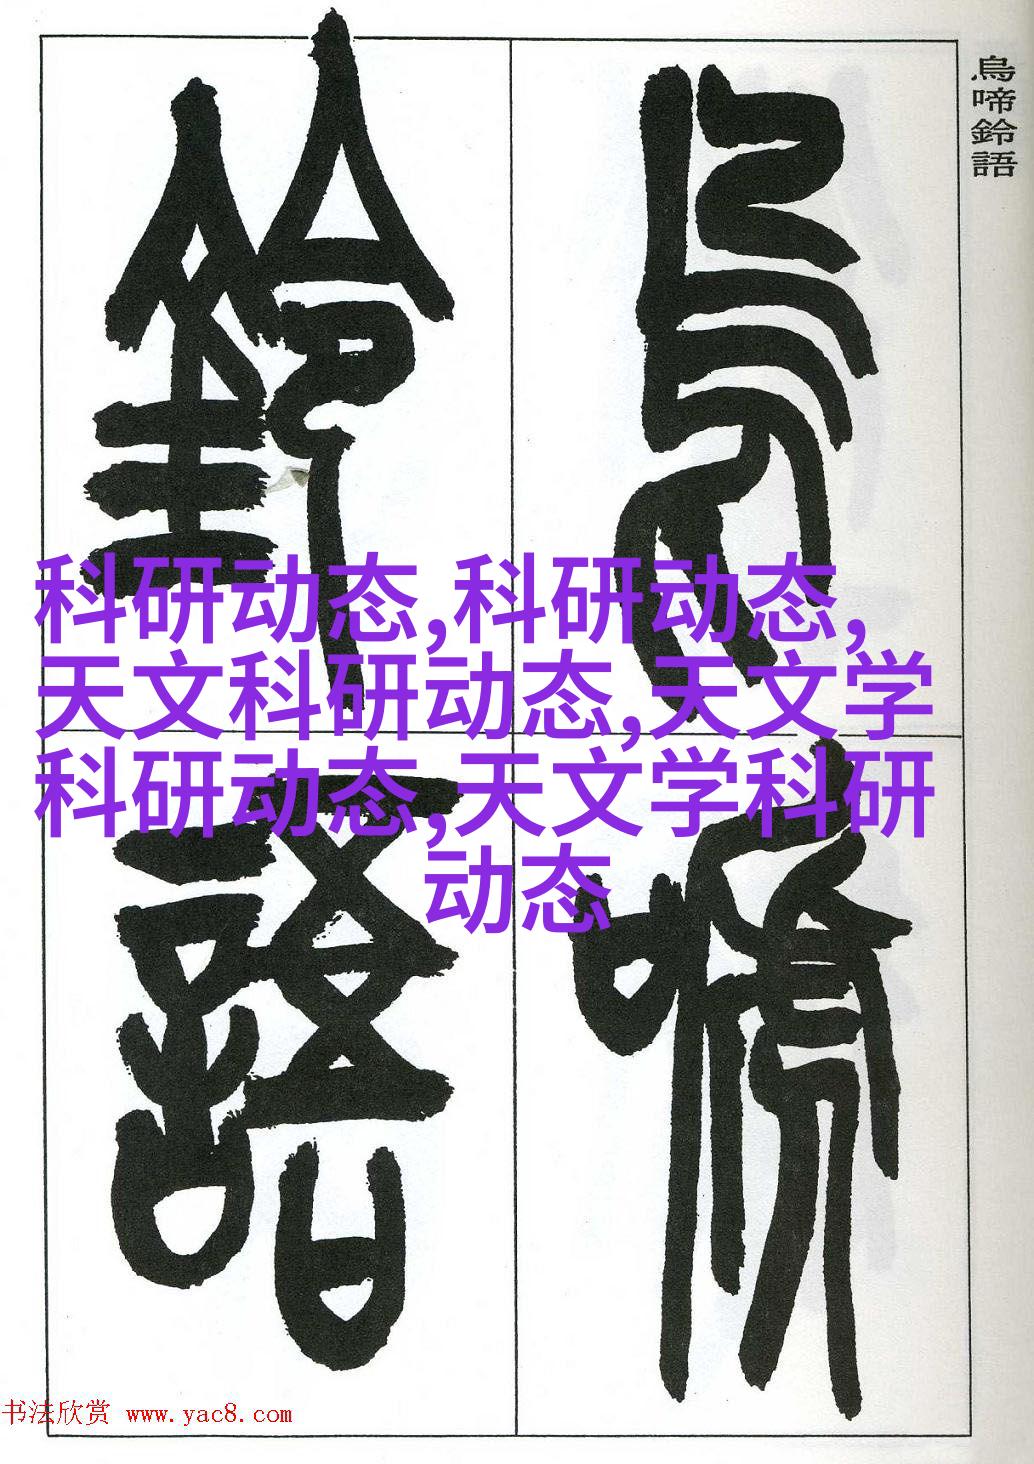 鳥啼鈴語
鳥啼
鈴語
科研动态,科研动态,
天文科研动态,天文学
科研动态,天文学科研
动态
书法欣赏 www.yac8.com